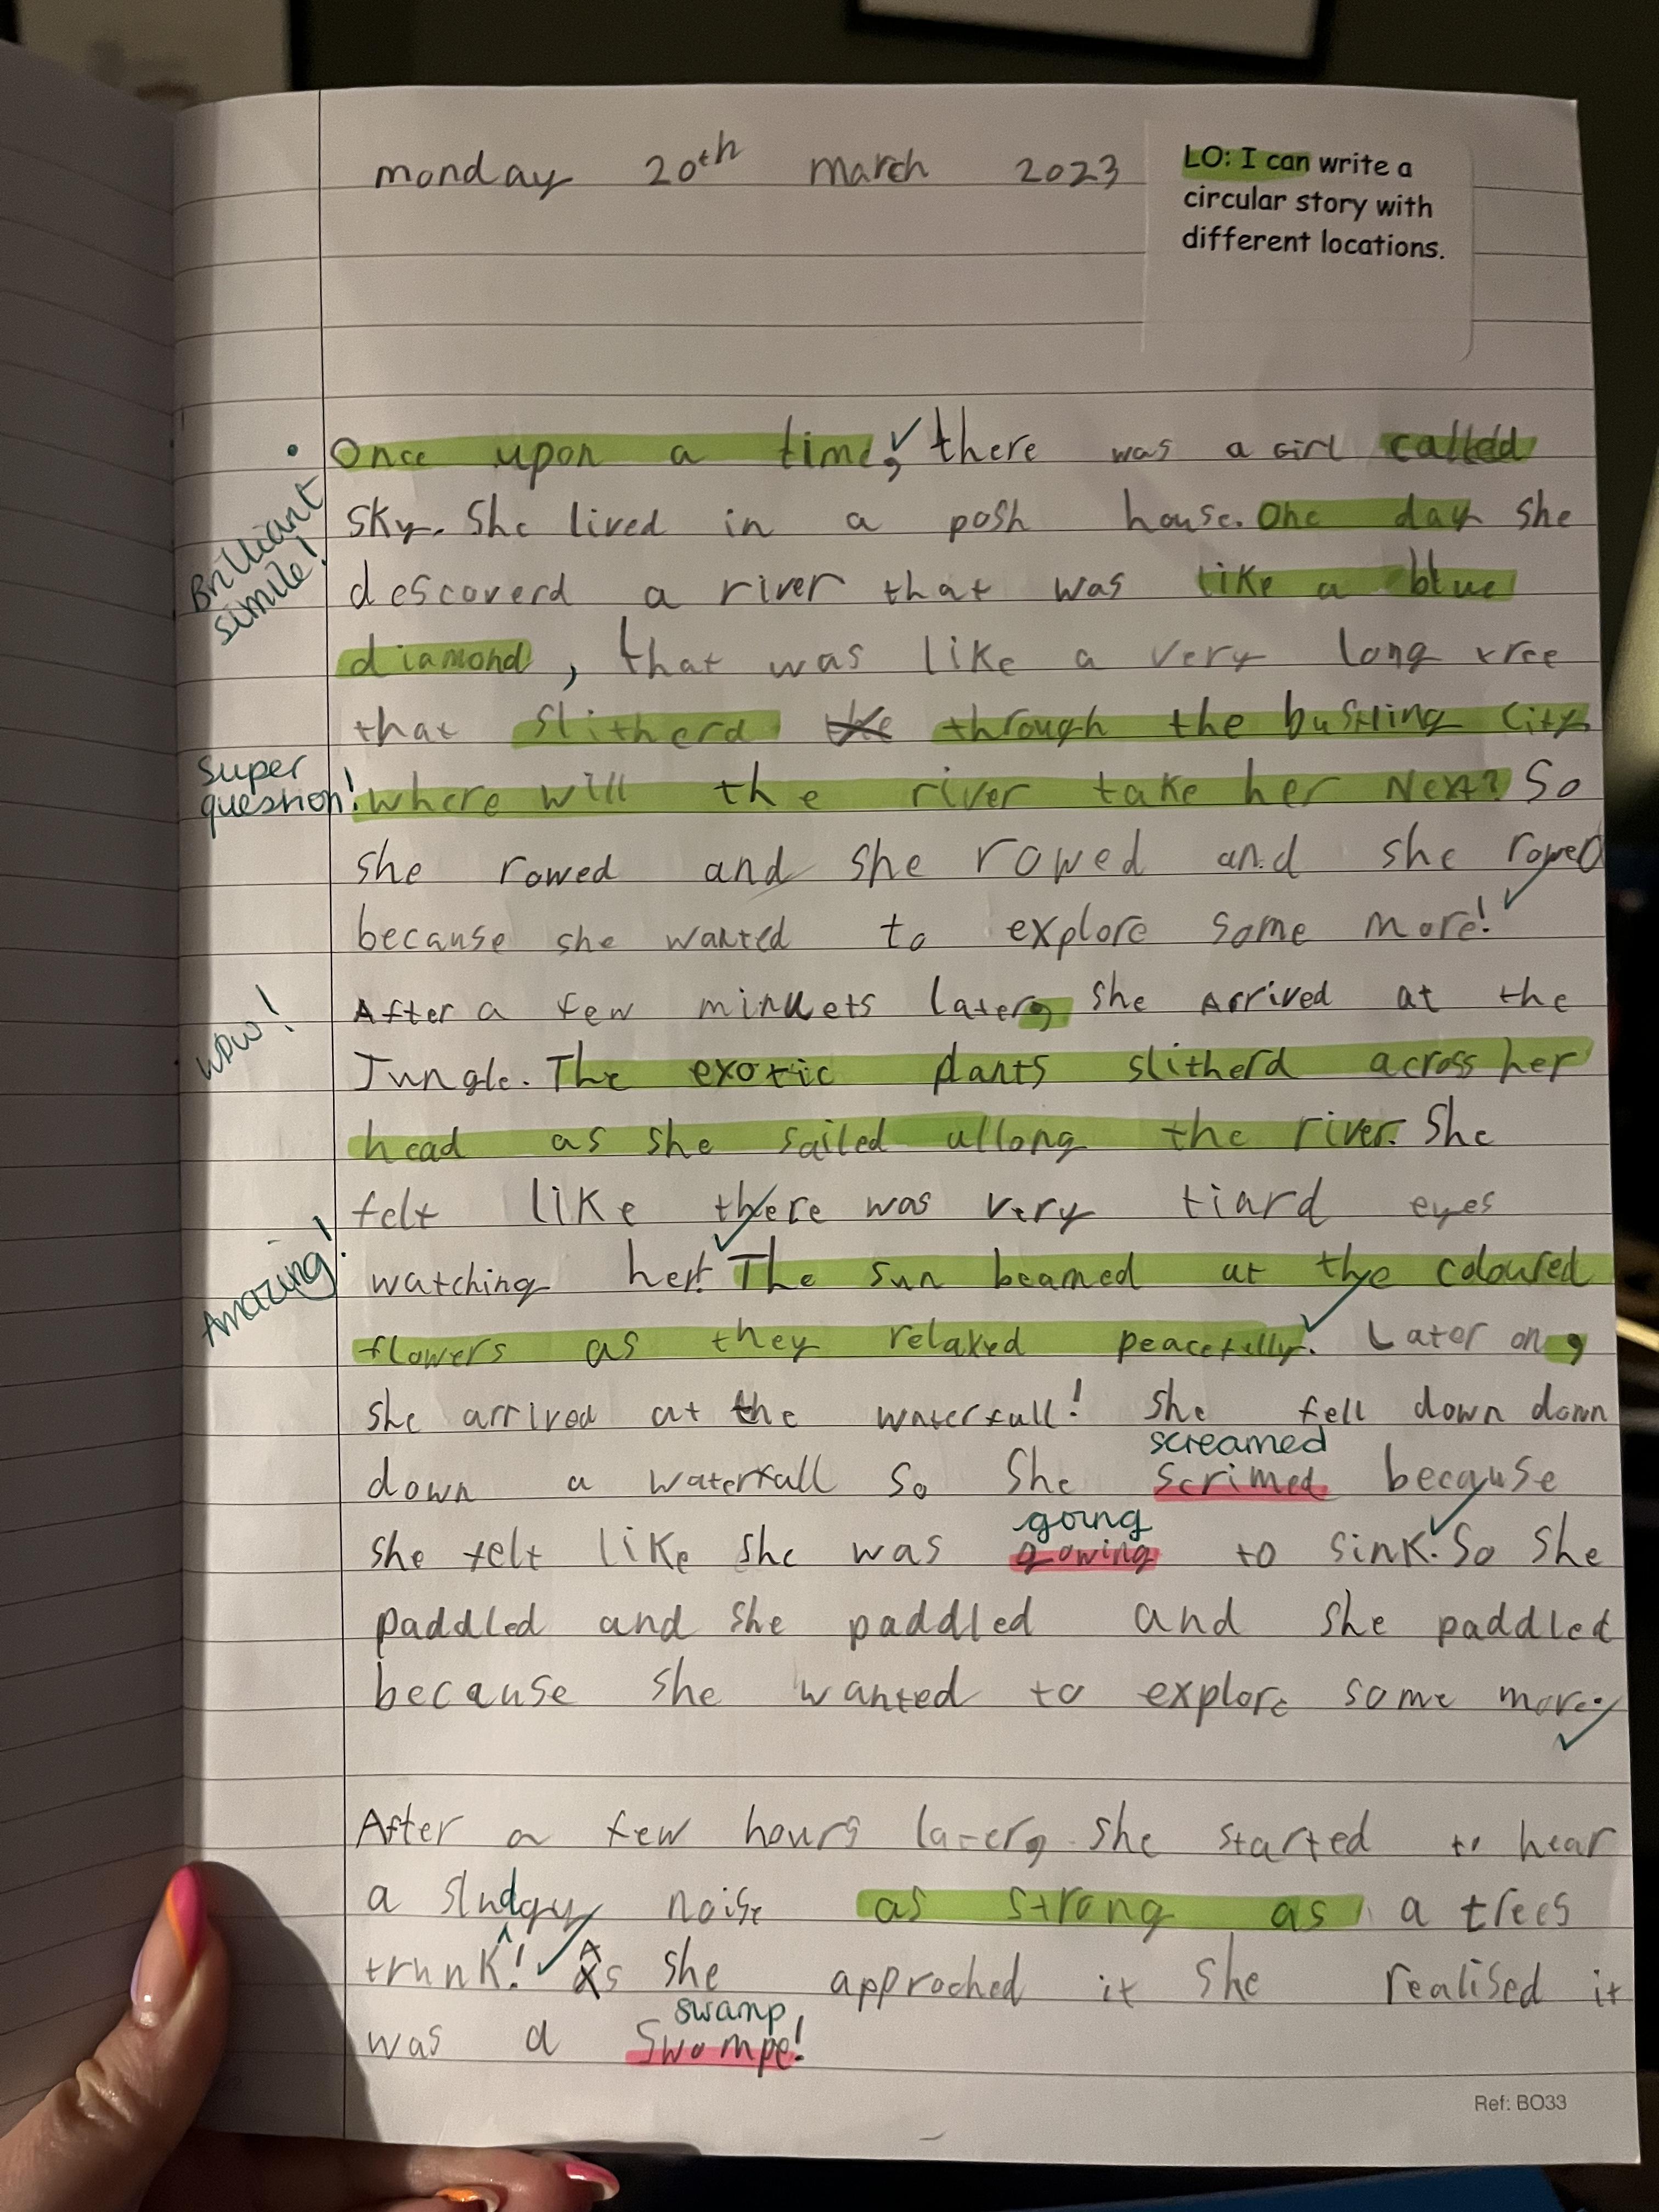 monday 20th march 2023
LO: I can write a
circular story with
different locations.
Once upon a time, there was a Girl called
Brilliant
simile!
Sky. She lived in a posh house. One day she
descoverd a river that was like a blue
diamond, that was like a very long tree
that slitherd the through the bustling City.
Super
question!
where will the river take her Next? So
she rowed and she rowed and she rowed
because she wanted to explore some more!
After a few minuets later, she Arrived at the
wow!
Jungle. The exotic plants slitherd across her
head as she sailed allong the river. She
felt like there was very tiard eyes
Amazing!
watching her! The sun beamed at the coloured
flowers as they relaxed peacefully. Later on,
she arrived at the waterfall! She fell down down
screamed
down a waterfall so she scrimed because
going
she felt like she was gowing to sink. So she
paddled and she paddled and she paddled
because she wanted to explore some more.
After a few hours later, she started to hear
a sludgy noise as strong as a trees
trunk! As she approched it she realised it
swamp
was a Swompe!
Ref: BO33